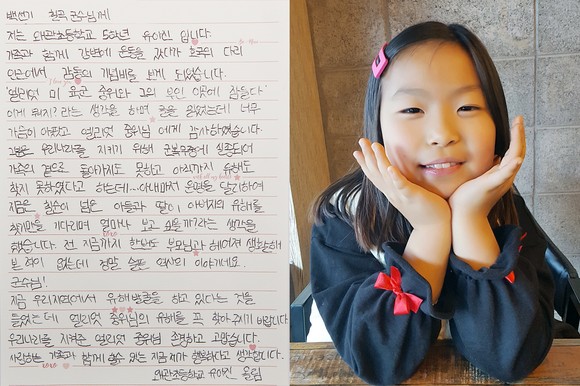 백선기 칠곡 군수님께
저는 왜관초등학교 5학년 유아진 입니다.
가족과 함께 강변에 운동을 갔다가 호국의 다리
인근에서 감동의 기념비를 보게 되었습니다.
'엘리엇 미 육군 중위와 그의 부인 이곳에 잠들다'
이게 뭐지? 라는 생각을 하며 글을 읽었는데 너무
가슴이 아팠고 엘리엇 중위님 에게 감사하였습니다.
우리나라를 지키기 위해 실종되어
가족의 곁으로 돌아가지도 못하고 아직까지 유해도
찾지 못하였다고 하는데... 아내마저 운명을 달리하여
지금은 넘은 아들과 딸이 아버지의 유해를
찾기만을 기다리며 얼마나 보고 싶을까?라는 생각을
했습니다. 전 지금까지 한번도 부모님과 헤어져 생활해
본 적이 없는데 정말 슬픈 역사의 이야기네요.
군수님!
지금 우리지역에서 유해발굴을 하고 있다는 것을
들었는데 엘리엇 중위님의 유해를 꼭 찾아 주기 바랍니다.
우리나라를 지켜준 엘리엇 중위님 존경하고 고맙습니다.
사랑하는 가족과 함께 할수 있는 지금 제가 행복하다고 생각합니다.
왜관초등학교 유아진 올림